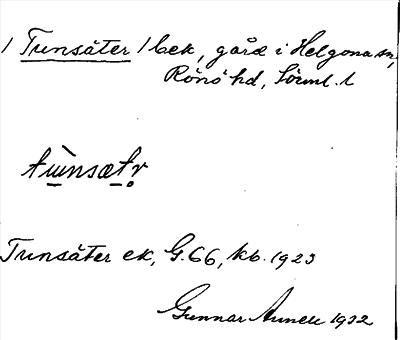 / Tunsäter / bek, gård i Helgona sn,
Rönö hd, Sörml. l
tùnsætr
Tunsäter ek, G. 66, kb. 1923
Gunnar 1932